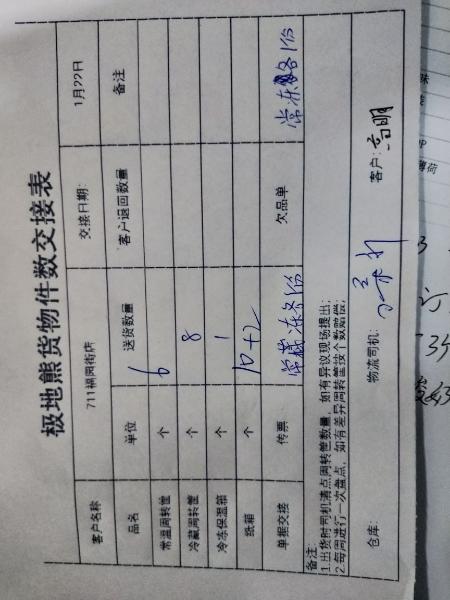 极地熊货物件数交接表
客户名称 711福园街店 交接日期: 1月22日
品名 单位 送货数量 客户退回数量 备注
常温周转筐 个 6
冷藏周转筐 个 8
冷冻保温箱 个 1
纸箱 个 10+2
单据交接 传票 常藏冻各1份 欠品单 常冻各1份
备注:
1.出货时司机清点周转筐数量,如有异议现场提出;
2.每周进行一次盘点,如有差异周转筐按个数赔偿;
仓库: 物流司机: 客户: